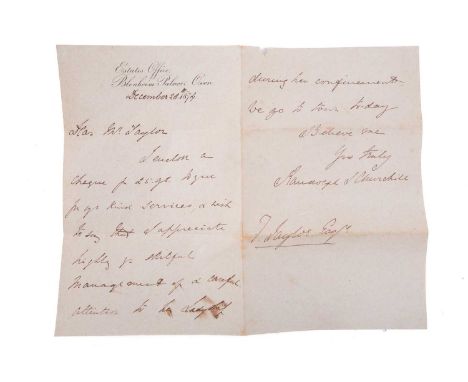 Estates Office
Blenheim Palace, Oxon
December 28th 1874
Dear Mr. Taylor
I enclose a
cheque for 25. gs to you
for yr kind services, & wish
to say that I appreciate
highly yr skilful
management of & careful
attention to her Ladyship
during her confinement
We go to town to-day
Believe me
Yrs truly
Randolph S Churchill
T Taylor Esqr